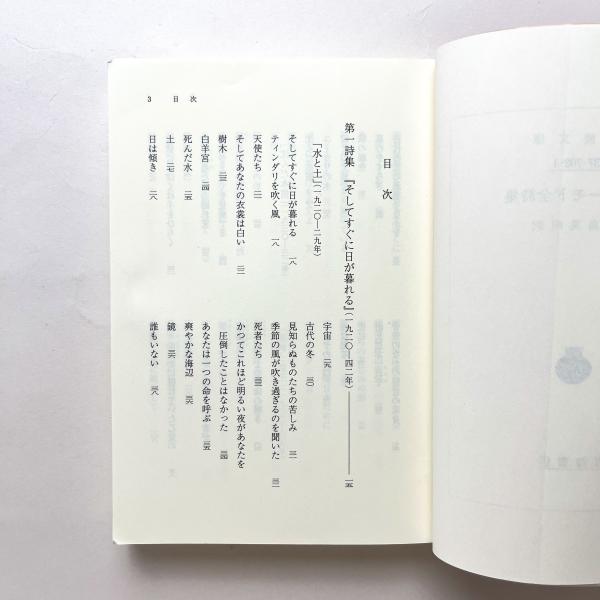 3　目次
目次
第一詩集『そしてすぐに日が暮れる』(一九二〇―四二年) ――― 一五
「水と土」(一九二〇―二九年)
そしてすぐに日が暮れる　一八
ティンダリを吹く風　一八
天使たち　二一
そしてあなたの衣裳は白い　二二
樹木　二三
白羊宮　二四
死んだ水　二五
土　二七
日は傾き　二八
宇宙　二九
古代の冬　三〇
見知らぬものたちの苦しみ　三一
季節の風が吹き過ぎるのを聞いた　三二
死者たち　三三
かつてこれほど明るい夜があなたを
圧倒したことはなかった　三四
あなたは一つの命を呼ぶ　三五
爽やかな海辺　三六
鏡　三六
誰もいない　三八